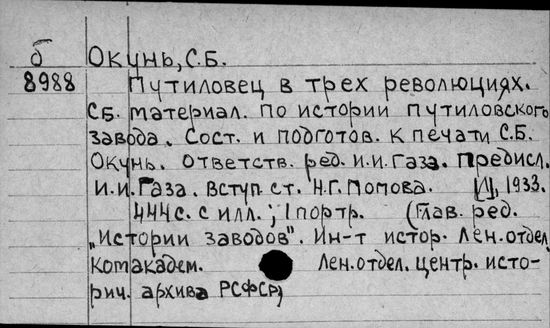 б Окунь, С.Б.
8988 Путиловец в трех революциях.
Сб. материал. по истории Путиловского
завода. Сост. и подготов. к печати С.Б.
Окунь. Ответств. ред. И.И. Газа. Предисл.
И.И. Газа. Вступ. ст. Н.Г. Попова. [Л], 1933.
444 с. с илл.; 1 портр. (Глав. ред.
„Истории заводов". Ин-т истор. Лен.отдел.
Комакадем. Лен.отдел. центр. исто-
рич. архива РСФСР)